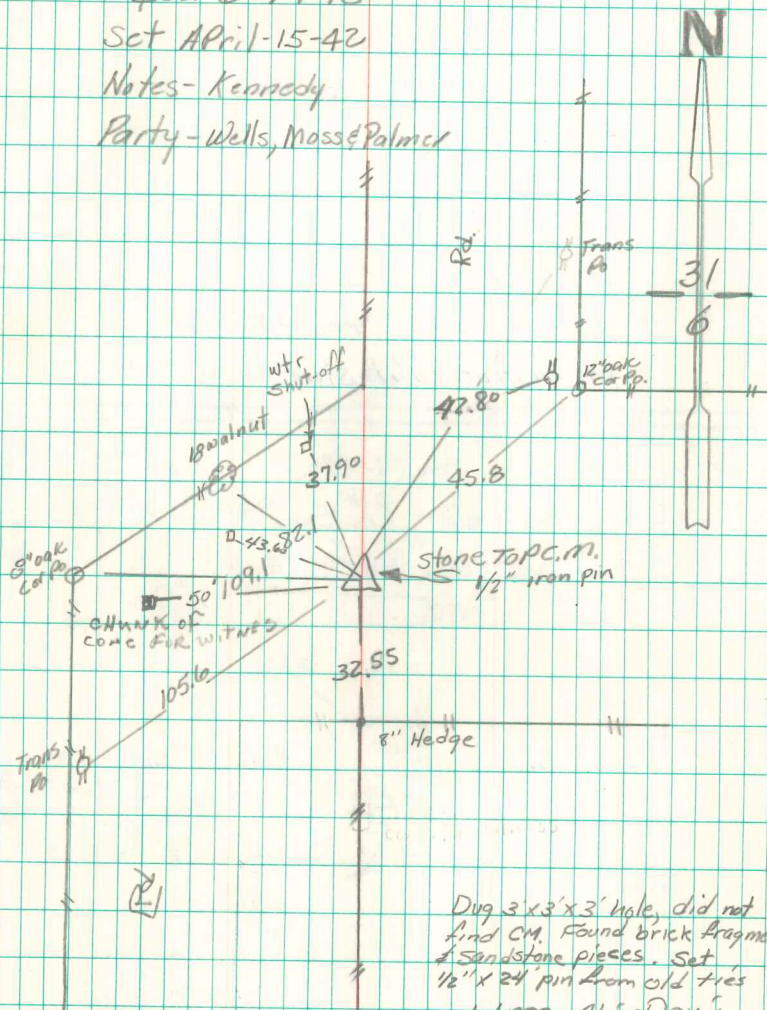 Set April-15-42
Notes- Kennedy
Party- Wells, Moss & Palmer
N
Rd.
Trans
Po
31
6
wtr
shut-off
12" oak
cor Po.
18 walnut
42.80
37.90
45.8
82.1
43.65
8" oak
cor Po
109.1
50'
Stone Top C.M.
1/2" iron pin
CHUNK OF
CONC FOR WITNES
105.6
32.55
8" Hedge
Trans
Po
Rd
Dug 3'x3'x3' hole, did not
find CM. Found brick fragme
& Sandstone pieces. Set
1/2" x 24" pin from old ties